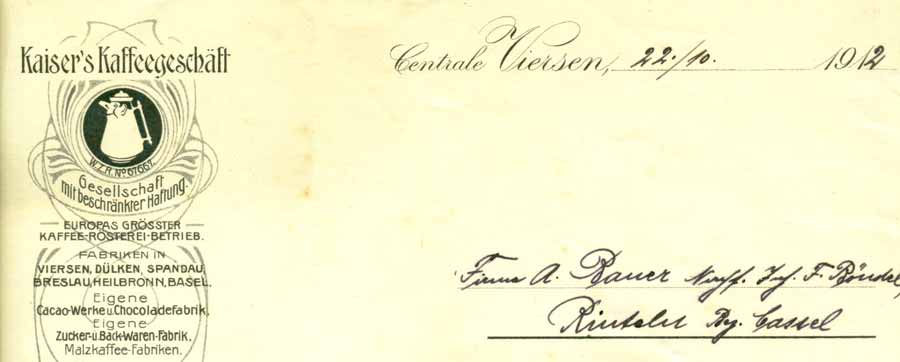 Kaiser's Kaffeegeschäft
W.Z.R. No 67667.
Gesellschaft
mit beschränkter Haftung.
EUROPAS GRÖSSTER
KAFFEE-RÖSTEREI-BETRIEB.
FABRIKEN IN
VIERSEN, DÜLKEN, SPANDAU,
BRESLAU, HEILBRONN, BASEL.
Eigene
Cacao-Werke u. Chocoladefabrik,
Eigene
Zucker- u. Back-Waren-Fabrik.
Malzkaffee-Fabriken.
Centrale Viersen, 22./10. 1912
Firma A. Bauer Nachf. Inh. F. Böndel,
Rinteln Bz. Cassel